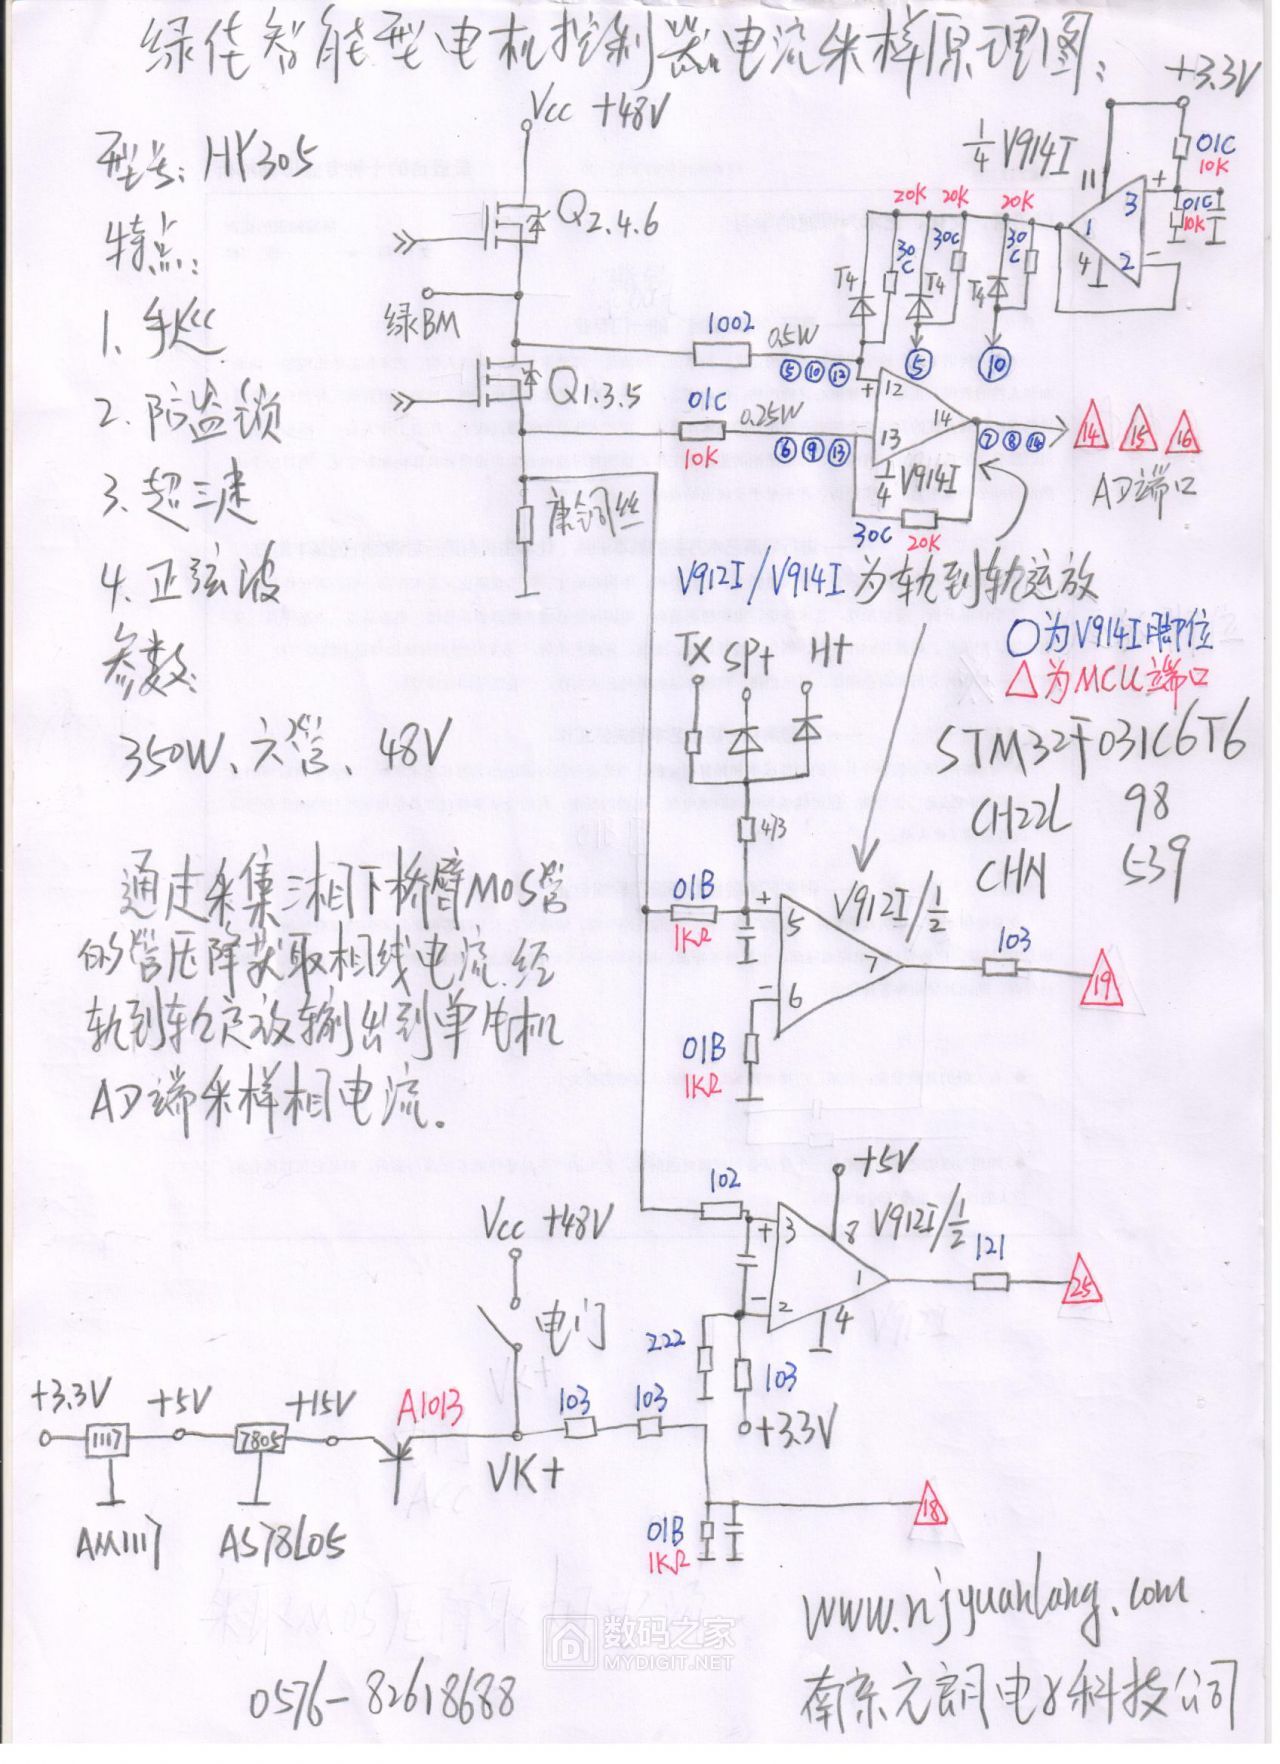 绿佳智能型电机控制器电流采样原理图:
型号: HY305
特点:
1. 手ACC
2. 防盗锁
3. 超三速
4. 正弦波
参数:
350W、六管 48V
通过采集三相下桥臂MOS管
的管压降获取相线电流.经
轨到轨运放输出到单片机
AD端采样相电流.
Vcc +48V
Q2.4.6
绿BM
Q1.3.5
康铜丝
1002
0.5W
⑤ ⑩ ⑫
01C
0.25W
10K
⑥ ⑨ ⑬
+
12
13
14
1/4 V914I
30C
20K
⑦ ⑧ ⑭
14
15
16
AD端口
20K
20K
20K
30C
30C
30C
T4
T4
T4
⑤
⑩
+3.3V
1/4 V914I
11
1
4
3
2
+
−
01C
10K
01C
10K
V912I/V914I为轨到轨运放
○为V914I脚位
△为MCU端口
STM32F031C6T6
CH22L 98
CHN 539
TX
SP+
H+
473
01B
1KΩ
+
5
−
6
7
V912I/1/2
103
19
01B
1KΩ
102
+
3
−
2
8
1
4
+5V
V912I/1/2
121
25
222
103
+3.3V
Vcc +48V
电门
VK+
103
103
A1013
+15V
7805
+5V
1117
+3.3V
AM1117
AS78L05
01B
1KΩ
18
www.njyuanlang.com
南京元朗电子科技公司
0576-82618688
数码之家
MYDIGIT.NET